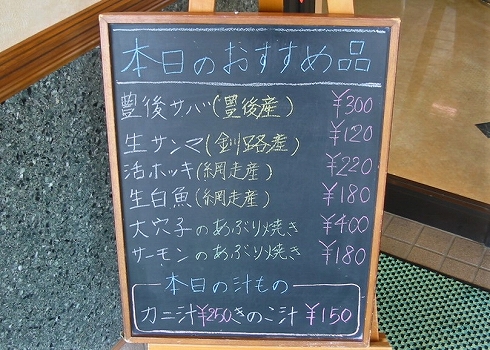 本日のおすすめ品
豊後サバ(豊後産) ¥300
生サンマ(釧路産) ¥120
活ホッキ(網走産) ¥220
生白魚(網走産) ¥180
大穴子のあぶり焼き ¥400
サーモンのあぶり焼き ¥180
本日の汁もの
カニ汁¥250きのこ汁 ¥150